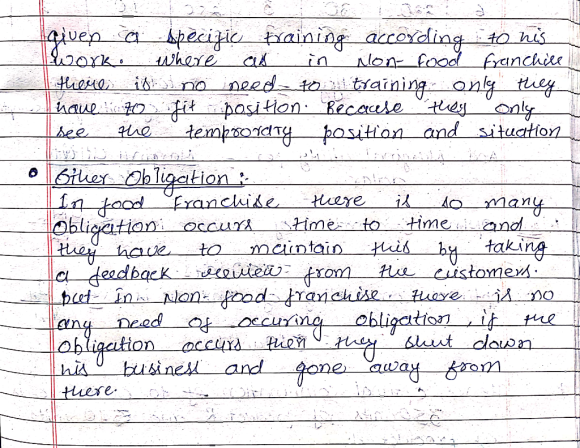 given a specific training according to his
work. where as in Non-food franchise
there is no need to training only they
have to fit position. Because they only
see the temprorary position and situation
• Other Obligation :-
In food Franchise there is so many
Obligation occurs time to time and
they have to maintain this by taking
a feedback review from the customers.
but In Non-food franchise there is no
any need of occuring obligation, if the
obligation occurs then they shut down
his business and gone away from
there.